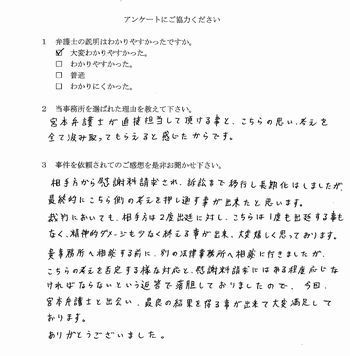 アンケートにご協力ください
1 弁護士の説明はわかりやすかったですか。
☑ 大変わかりやすかった。
□ わかりやすかった。
□ 普通
□ わかりにくかった。
2 当事務所を選ばれた理由を教えて下さい。
宮本弁護士が直接担当して頂ける事と、こちらの思い、考えを
全て汲み取ってもらえると感じたからです。
3 事件を依頼されてのご感想を是非お聞かせ下さい。
相手方から慰謝料請求され、訴訟まで移行し長期化はしましたが、
最終的にこちら側の考えを押し通す事が出来たと思います。
裁判においても、相手方は2度出廷に対し、こちらは1度も出廷する事も
なく、精神的ダメージも少なく終える事が出来、大変嬉しく思っております。
貴事務所へ相談する前に、別の法律事務所へ相談に行きましたが、
こちらの考えを否定する様な対応と、慰謝料請求にはある程度応じな
ければならないという返答で落胆しておりましたので、今回、
宮本弁護士と出会い、最良の結果を得る事が出来て大変満足して
おります。
ありがとうございました。